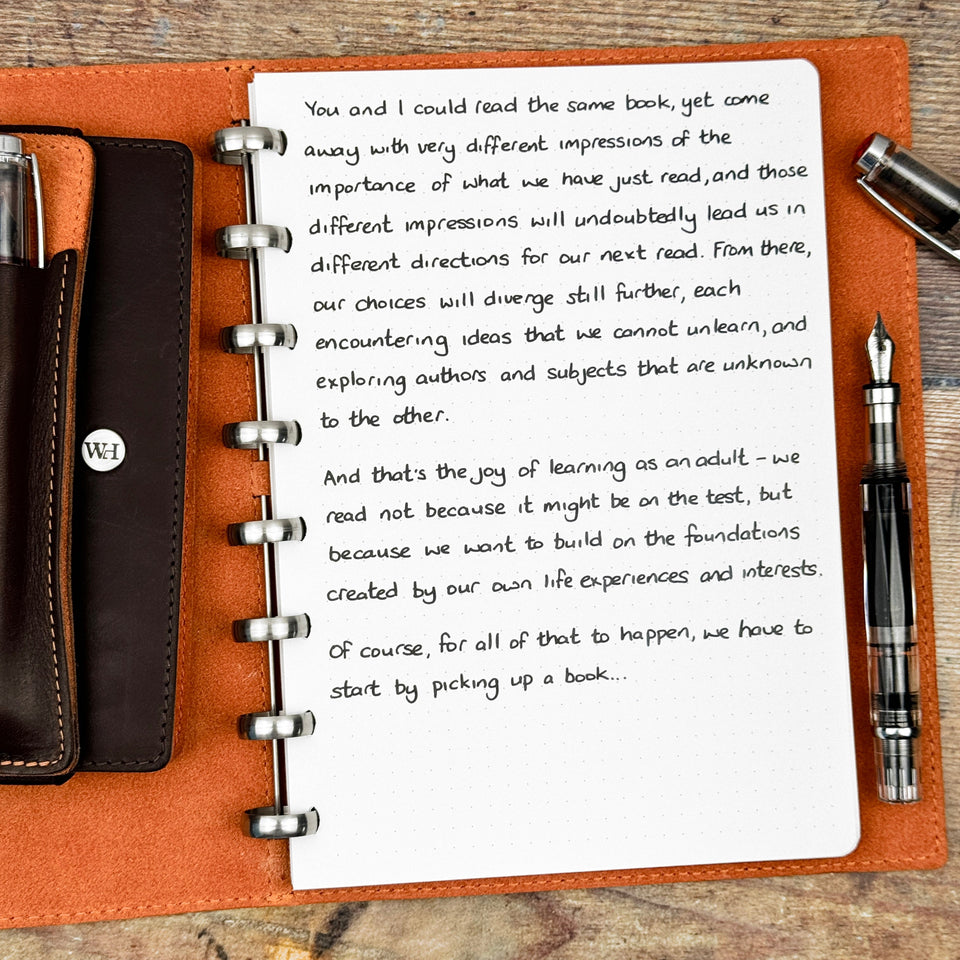 You and I could read the same book, yet come
away with very different impressions of the
importance of what we have just read, and those
different impressions will undoubtedly lead us in
different directions for our next read. From there,
our choices will diverge still further, each
encountering ideas that we cannot unlearn, and
exploring authors and subjects that are unknown
to the other.
And that's the joy of learning as an adult – we
read not because it might be on the test, but
because we want to build on the foundations
created by our own life experiences and interests.
Of course, for all of that to happen, we have to
start by picking up a book...
WH